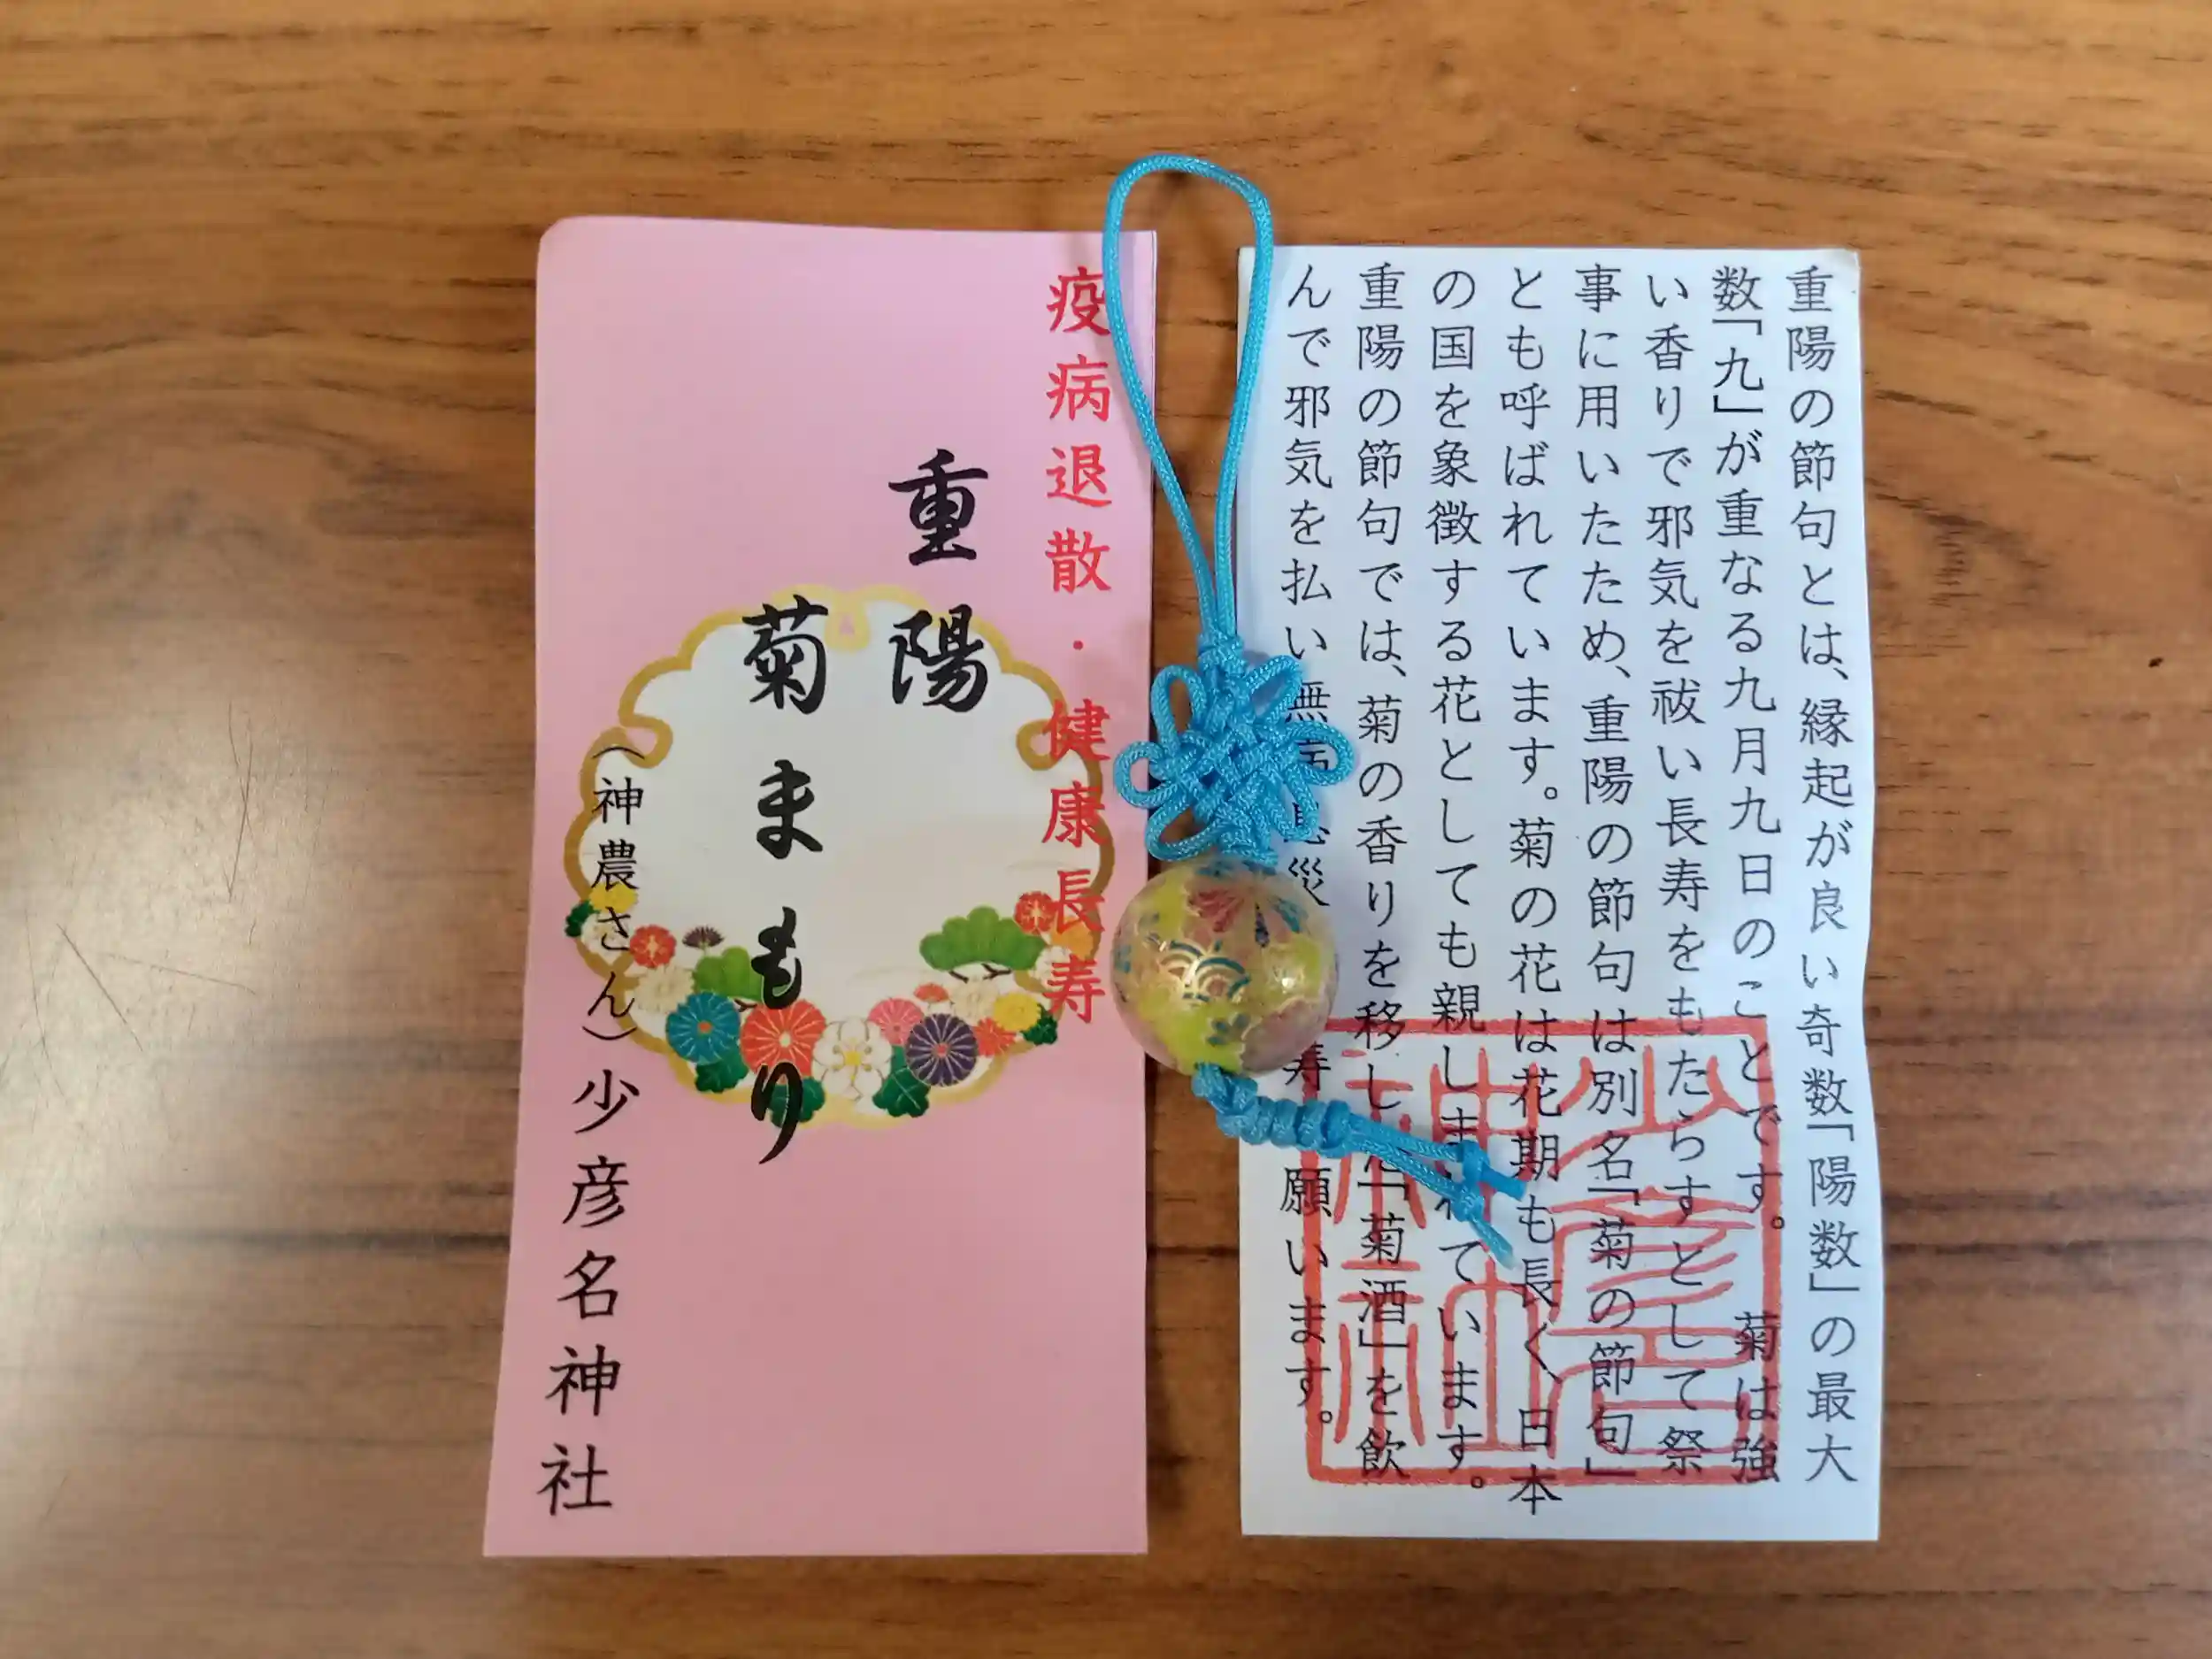 疫病退散・健康長寿
重陽
菊まもり
（神農さん）少彦名神社
重陽の節句とは、縁起が良い奇数「陽数」の最大
数「九」が重なる九月九日のことです。 菊は強
い香りで邪気を祓い長寿をもたらすとして祭
事に用いたため、重陽の節句は別名「菊の節句」
とも呼ばれています。菊の花は花期も長く、日本
の国を象徴する花としても親しまれています。
重陽の節句では、菊の香りを移した「菊酒」を飲
んで邪気を払い無病息災 寿 願います。
少彦名
神社